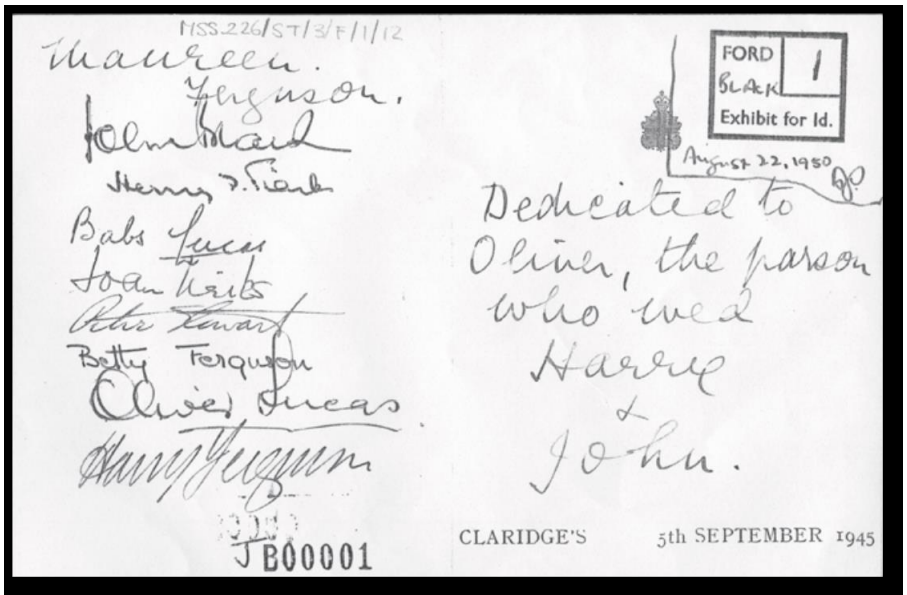 MSS.226/ST/3/F/1/12
Maureen.
Ferguson.
John Black
Henry Tiarks
Babs Lucas
Joan Tiarks
Peter Stewart
Betty Ferguson
Oliver Lucas
Harry Ferguson
JB00001
FORD
BLACK
1
Exhibit for Id.
August 22, 1950
Dedicated to
Oliver, the parson
who wed
Harry
&
John.
CLARIDGE'S 5th SEPTEMBER 1945